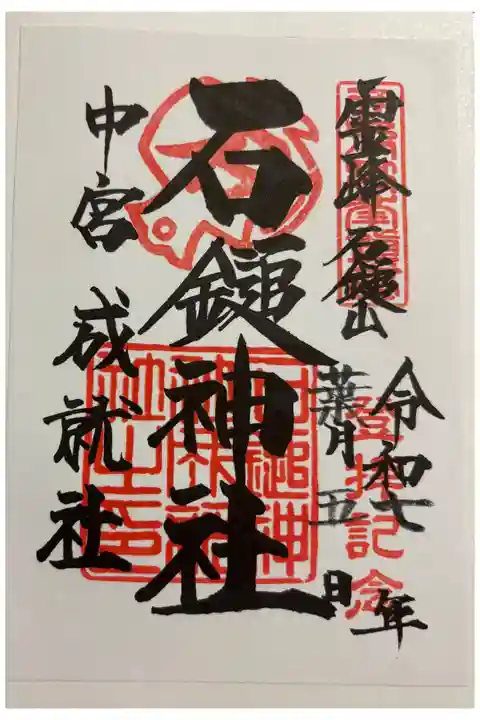 霊峰石鎚山
登拝記念
令和七年
葉月五日
石鎚神社
中宮成就社